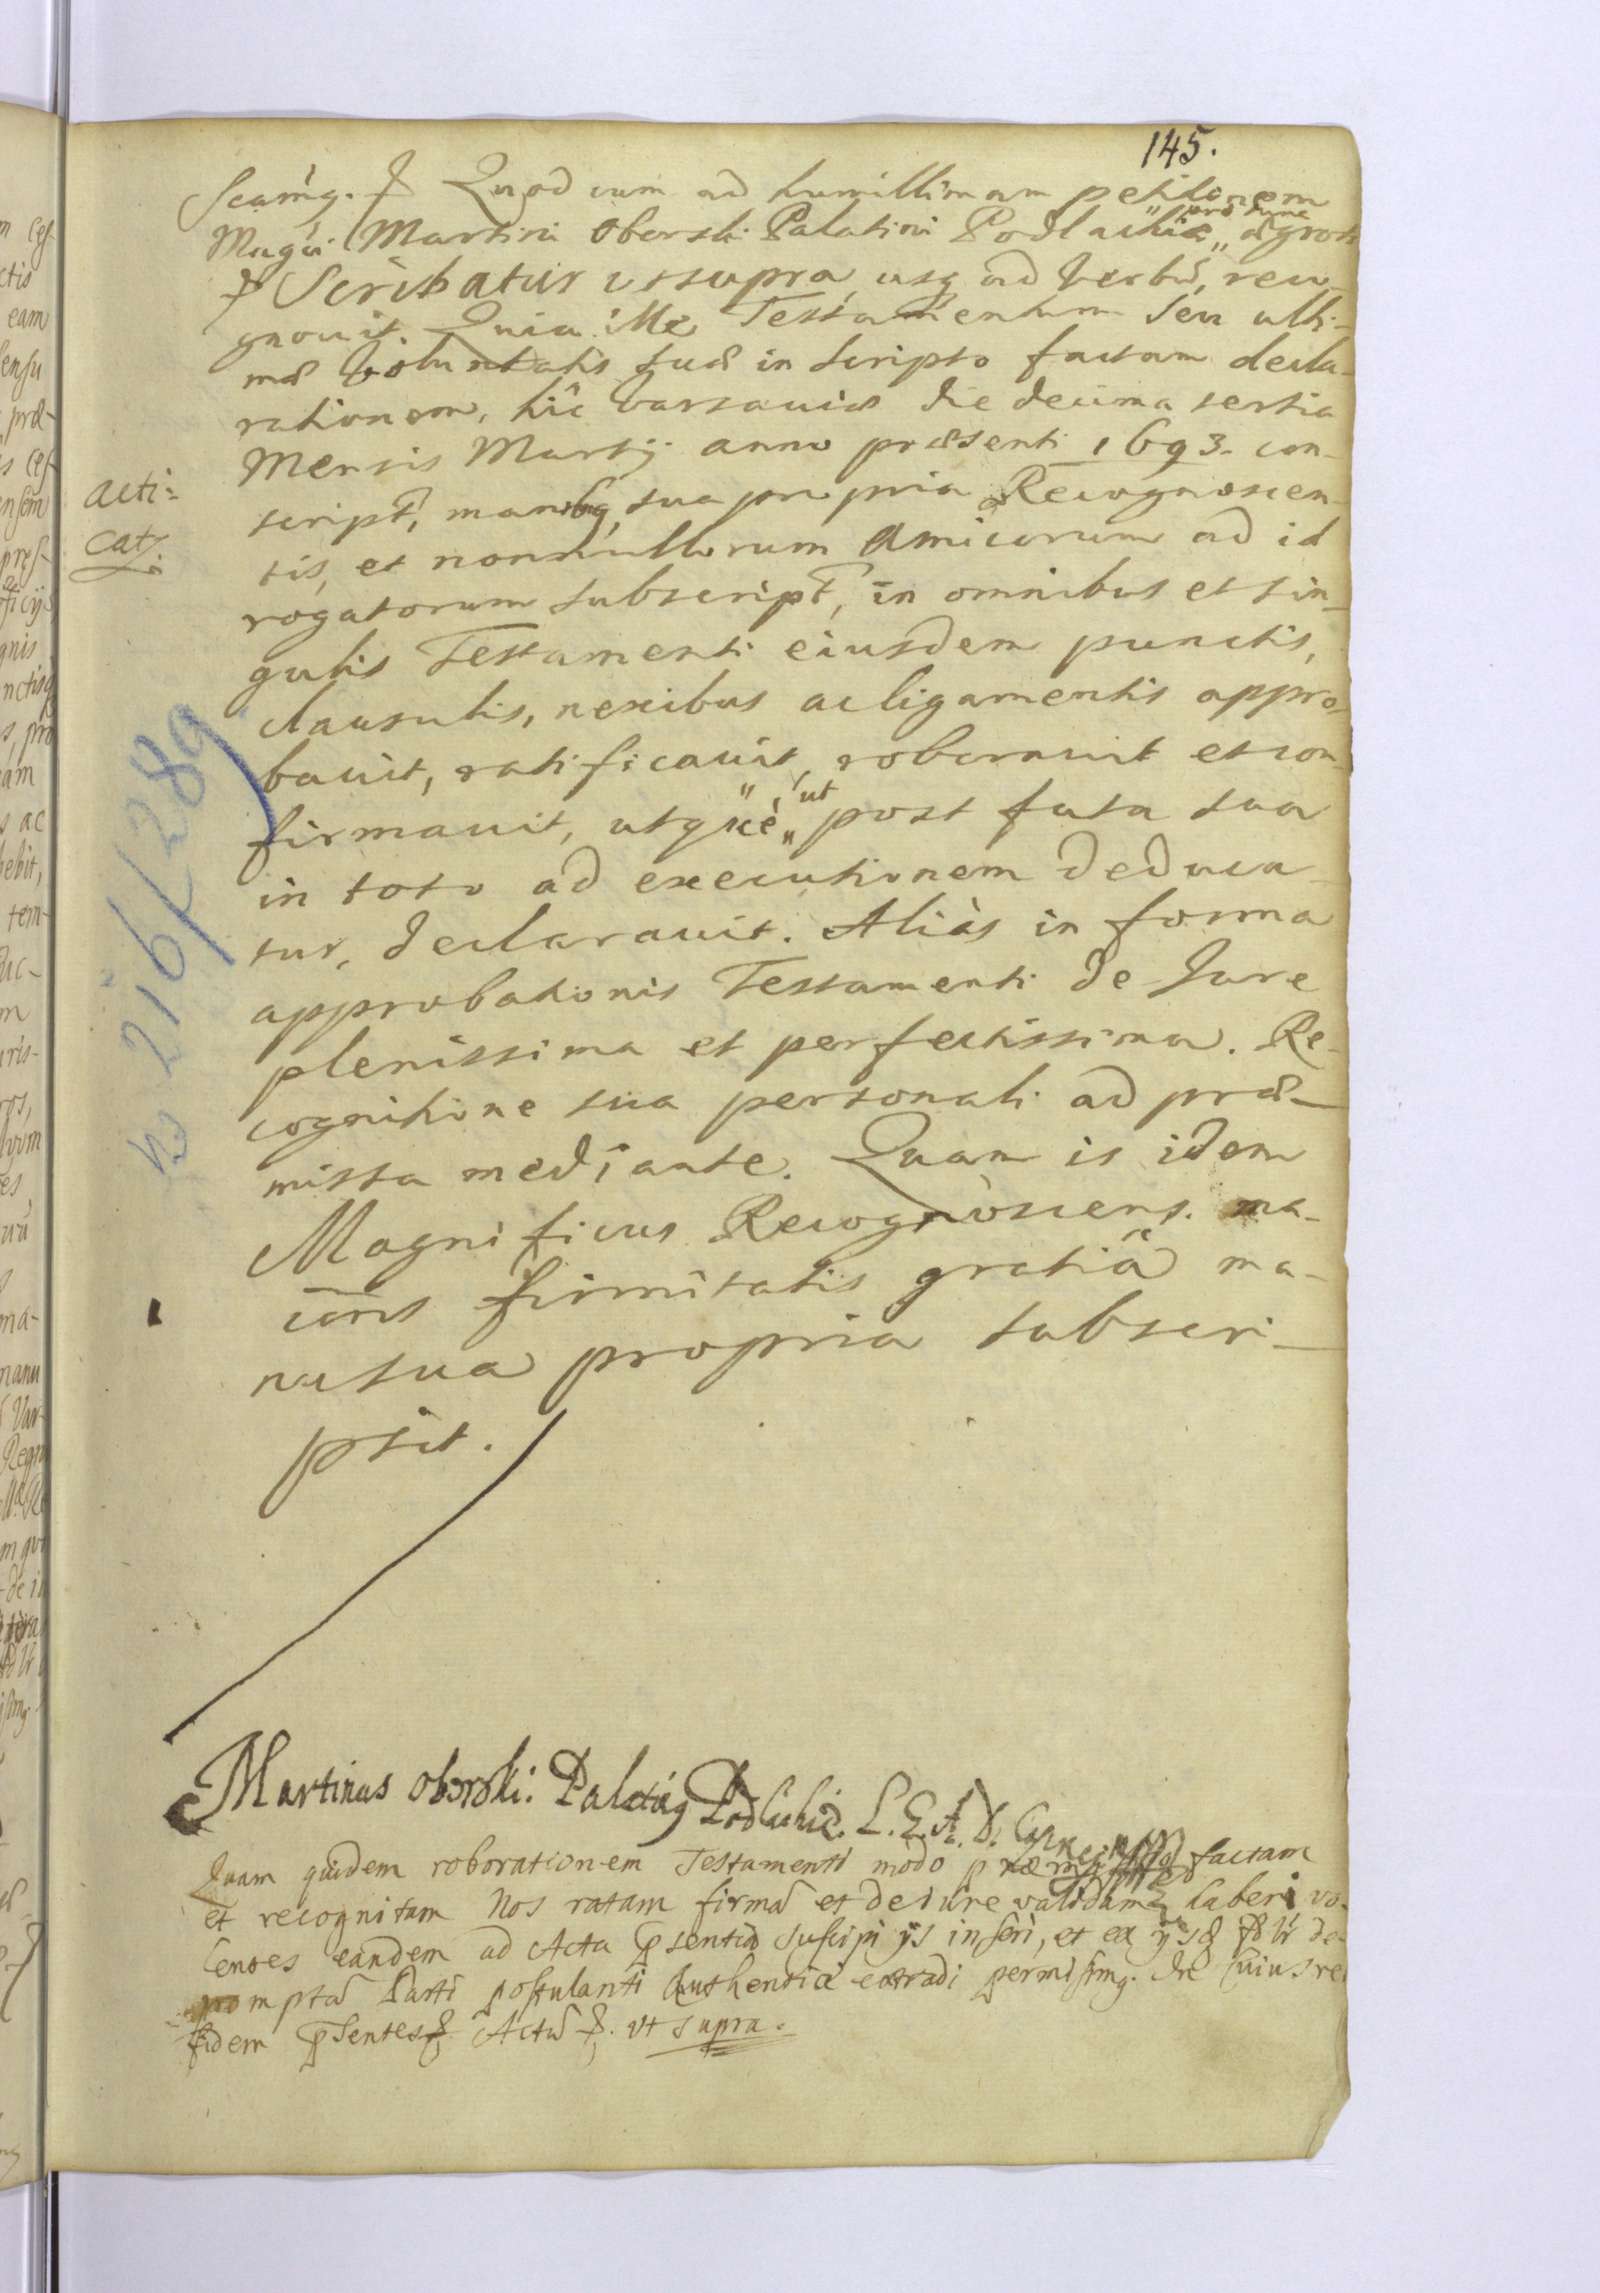 145.
Quod cum ad humillimam petitionem
Magci Martini Oborski Palatini Podlachiæ „pro tunc„ ægroti
Scribatur ut supra usq ad verbũ, reco-
gnouit. Quia ille Testamentum seu ulti-
mæ Voluntatis suæ in scripto factam decla-
rationem, hic Varsauiæ die decima tertia
Mensis Martij anno præsenti 1693. con-
script, manibq sua propria Recognoscen-
tis, et nonnullorum Amicorum ad id
rogatorum subscript, in omnibus et sin-
gulis Testamenti eiusdem punctis,
clausulis, nexibus ac ligamentis appro-
bauit, ratificauit, roborauit et con-
firmauit, utq „ut„ post fata sua
in toto ad executionem deduca-
tur, declarauit. Aliàs in forma
approbationis Testamenti de Jure
plenissima et perfectissima. Re-
cognitione sua personali ad præ-
missa mediante. Quam is idem
Magnificus Recognoscens. ma-
ioris firmitatis gratiâ ma-
nu sua propria subscri-
psit.
Acti-
cat.
216/289
Martinus Oborski. Palatinq Podlachiæ. L. E. A. D. Capneus
Quam quidem roborationem Testamenti modo præmisso factam
et recognitam Nos ratam firmã et de iure validam haberi vo-
lentes eandem ad Acta psentia suscipi ijs inseri, et ex ijs de-
promptã Parti postulanti Authenticè extradi permisimq. In Cuius rei
fidem psentes &. Actũ &. ut supra.